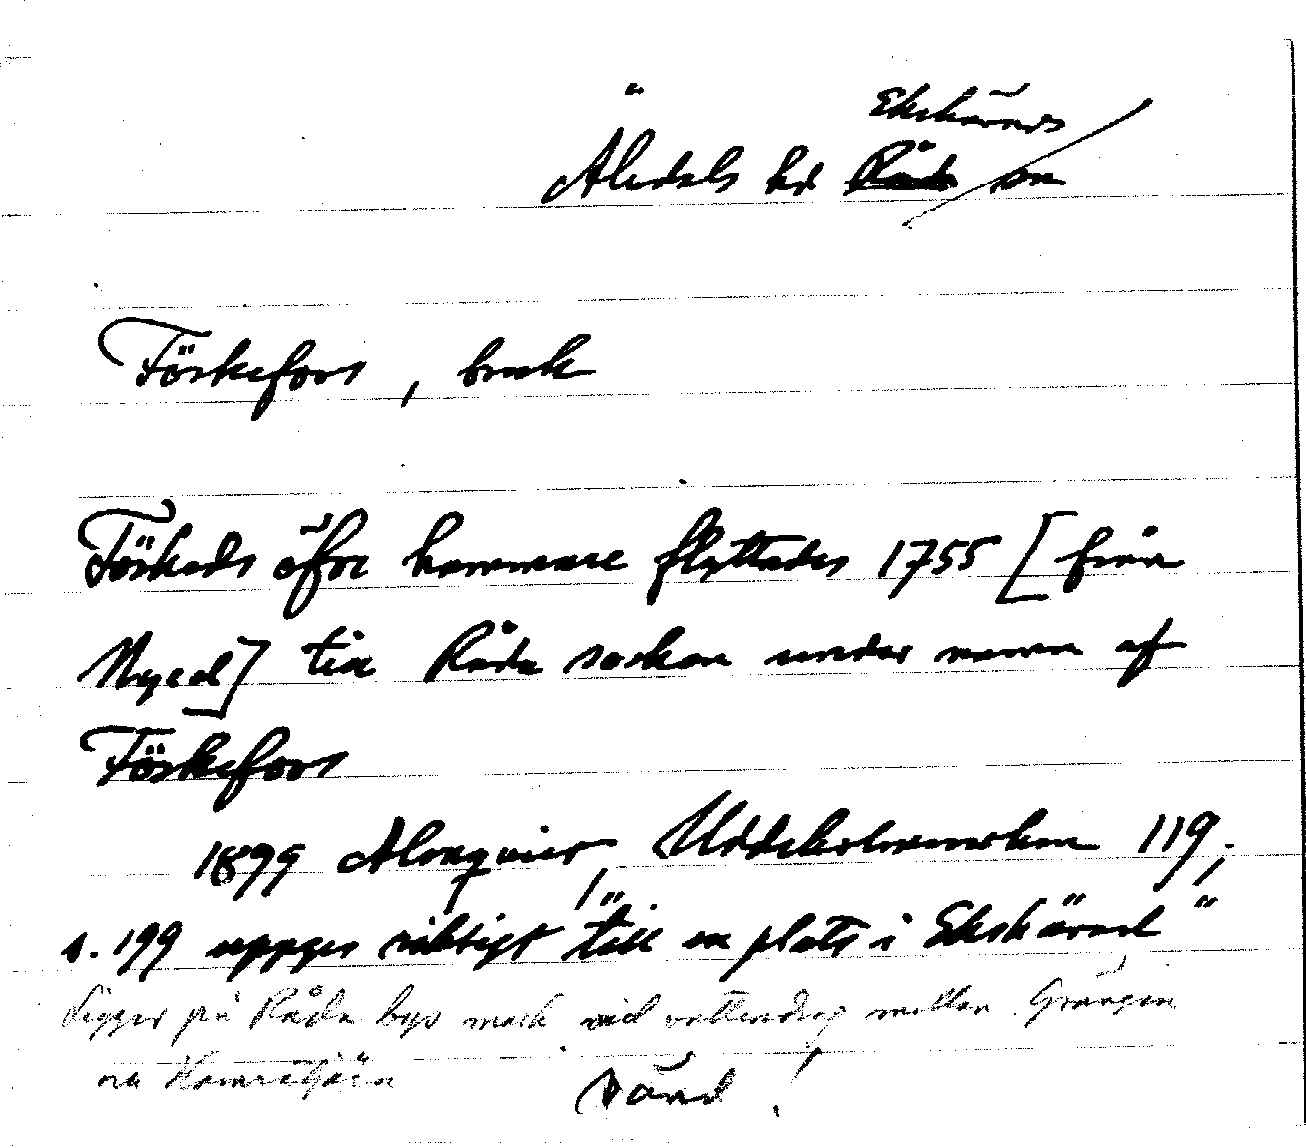 Ekshärads
Älvdals hd Råda sn
Föskefors, bruk
Föskeds öfre hammare flyttades 1755 [från
Nyed] till Råda socken under namn af
Föskefors
1899 Almquist, Uddeholmsverken 119;
s. 199 uppges riktigt "till en plats i Ekshärad"
Ligger på Råda bys mark vid vattendrag mellan
Vänd!